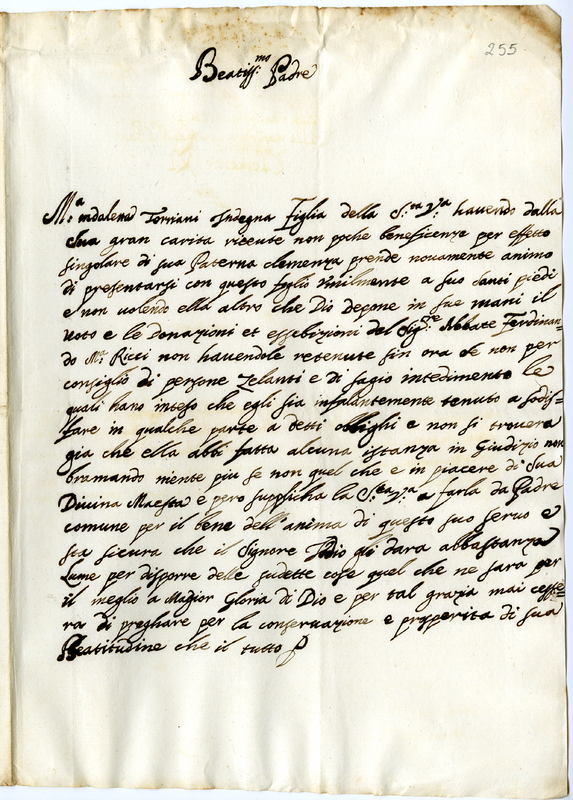 255
Beatiss:mo Padre
M.a mdalena Torriani Indegna Figlia della S.ta V.a havendo dalla
sua gran carita riceute non poche beneficenze per effetto
singolare di sua Paterna clemenza prende novamente animo
di presentarsi con questo foglio Umilmente a suo santi piedi
e non volendo ella altro che Dio depone in sue mani il
voto e le Donazioni et essebizioni del Sig:re Abbate Ferdinan=
do M.a Ricci non havendole retenute fin ora se non per
consiglio di persone Zelanti e di sagio intedimento le
quali hano inteso che egli sia tenuto a sodis=
fare in qualche parte a detti oblighi e non si trovera
gia che ella abbi fatta alcuna istanza in Giudizio non
bramando niente piu se non quel che e in piacere di Sua
Divina Maesta e pero supplicha la S.ta V.a a farla da Padre
comune per il bene dell'anima di questo suo servo e
sta sicura che il Signore Idio gli dara abbastanza
Lume per disporre delle sudette cose quel che ne sara per
il meglio a Magior Gloria di Dio e per tal grazia mai cesse=
ra di preghare per la conservazione e prosperita di sua
Beatitudine che il tutto